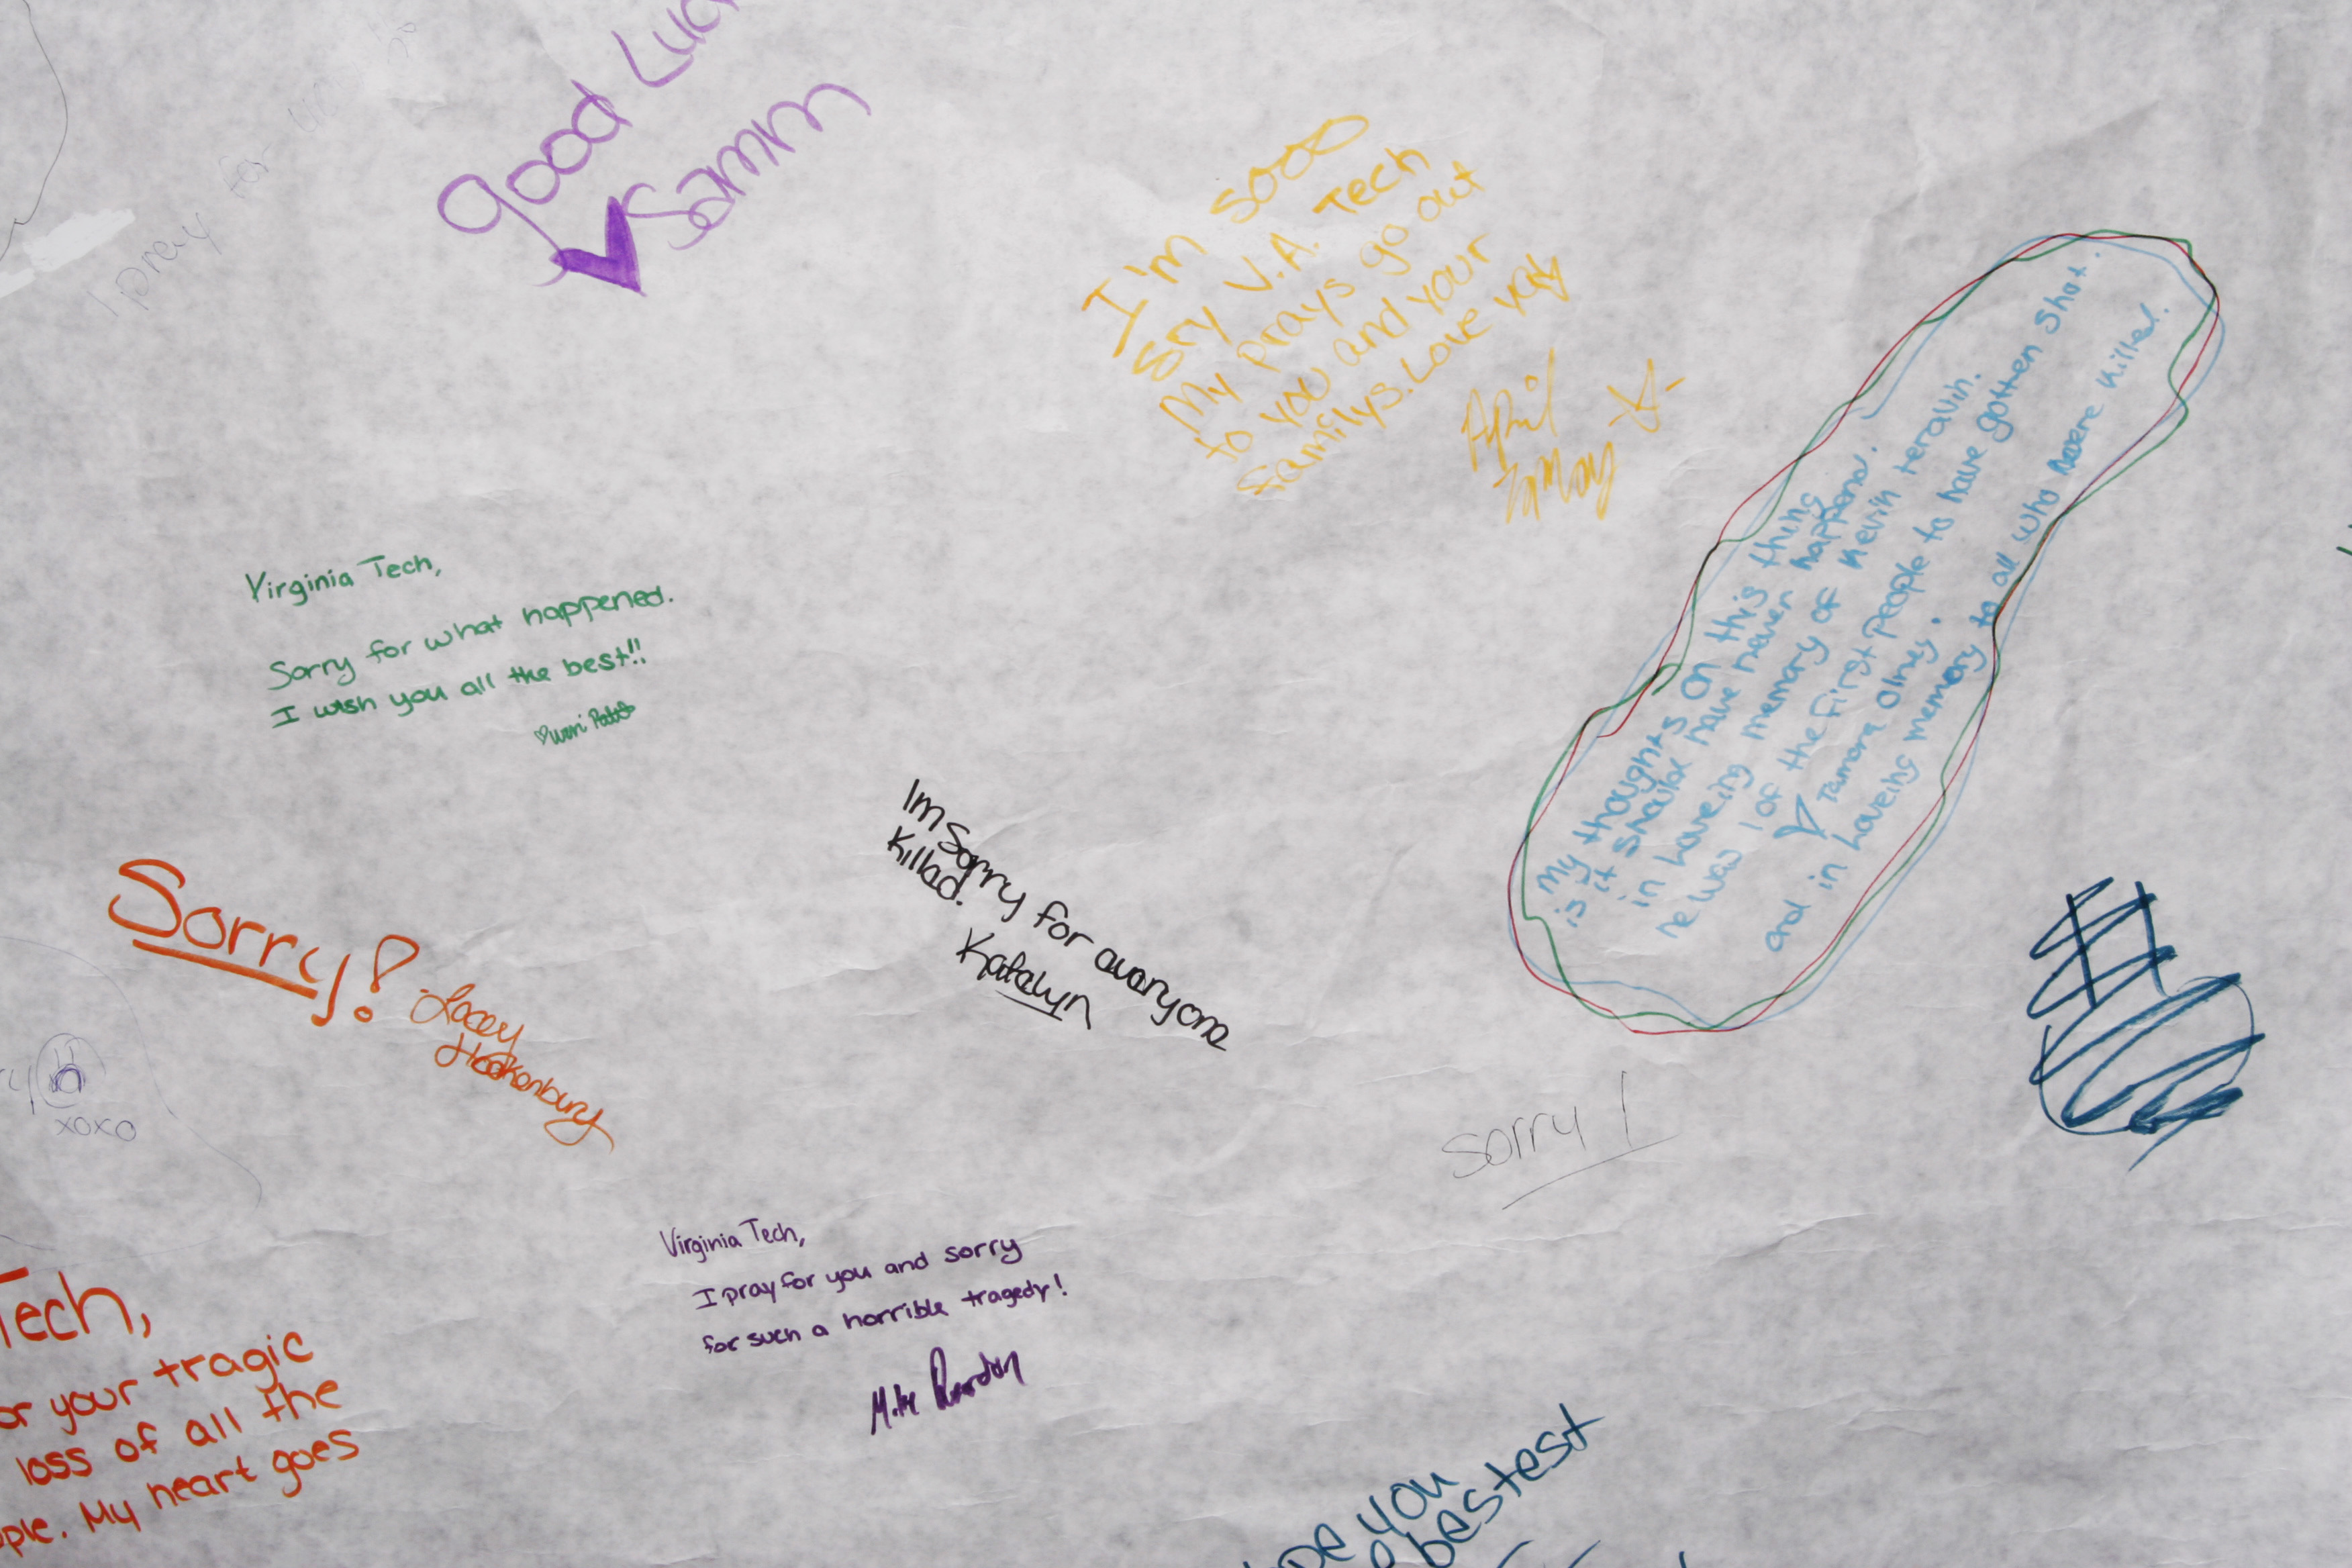 good Luc
Samm
I pray for
I'm sooo
sry V.A. Tech
My prays go out
to you and your
familys. Love ya
April
May
My thoughts on this thing
is it shoulda have never happend.
in Loveing memory of Kevin
he was 1 of the First People to have gotten shot.
Tamara Olney.
and in Loveing memory to all who were killed.
Virginia Tech,
Sorry for what happened.
I wish you all the best!!
Im sorry for everyone
killed.
Katelyn
Sorry!
Lacey
Hockenbury
xoxo
sorry!
Virginia Tech,
I pray for you and sorry
for such a horrible tragedy!
Mike
Tech,
or your tragic
loss of all the
ple. My heart goes
pe you
bestest